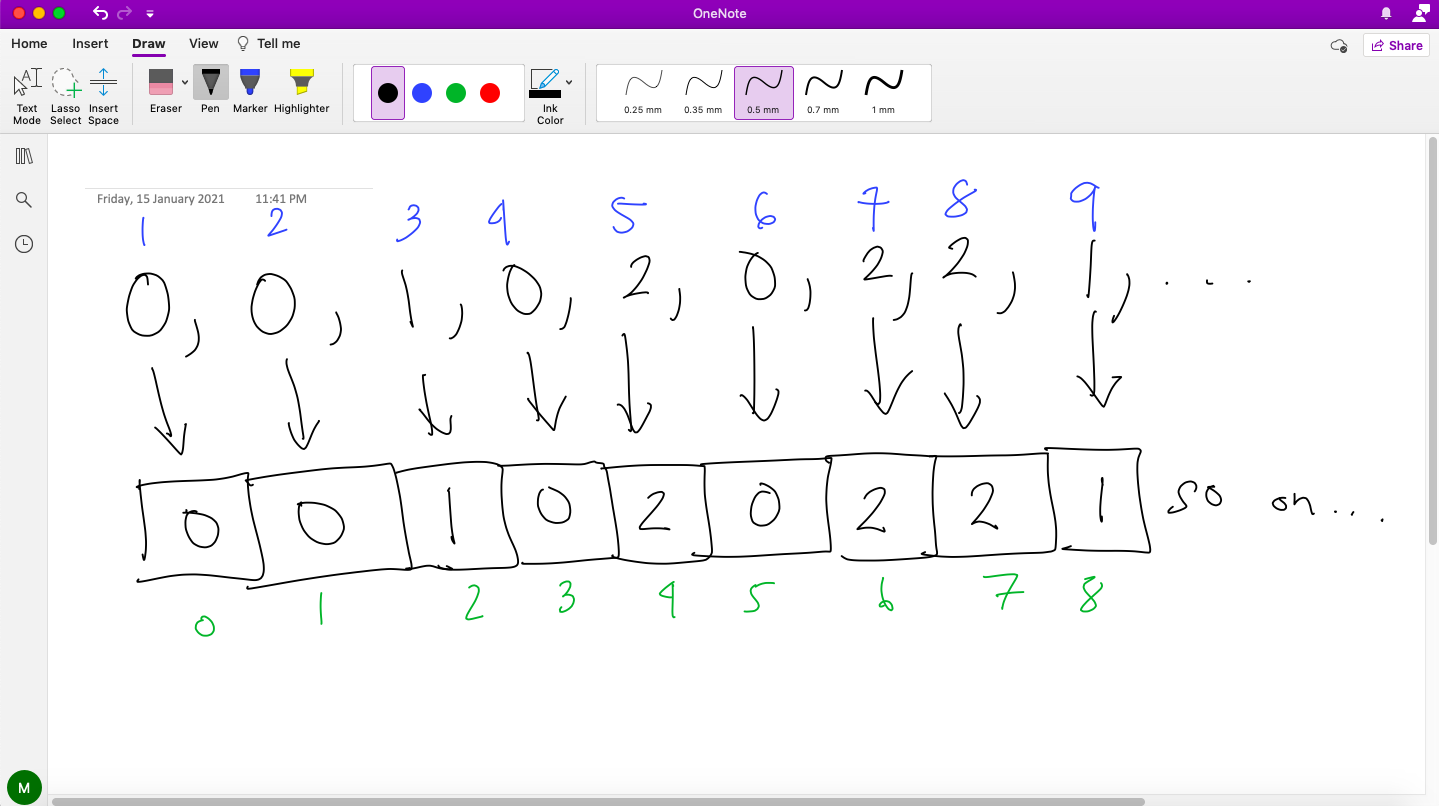 OneNote
Home Insert Draw View Tell me Share
Text Mode Lasso Select Insert Space Eraser Pen Marker Highlighter Ink Color 0.25 mm 0.35 mm 0.5 mm 0.7 mm 1 mm
Friday, 15 January 2021 11:41 PM
1 2 3 4 5 6 7 8 9
0, 0, 1, 0, 2, 0, 2, 2, 1, ...
0 0 1 0 2 0 2 2 1 so on...
0 1 2 3 4 5 6 7 8
M